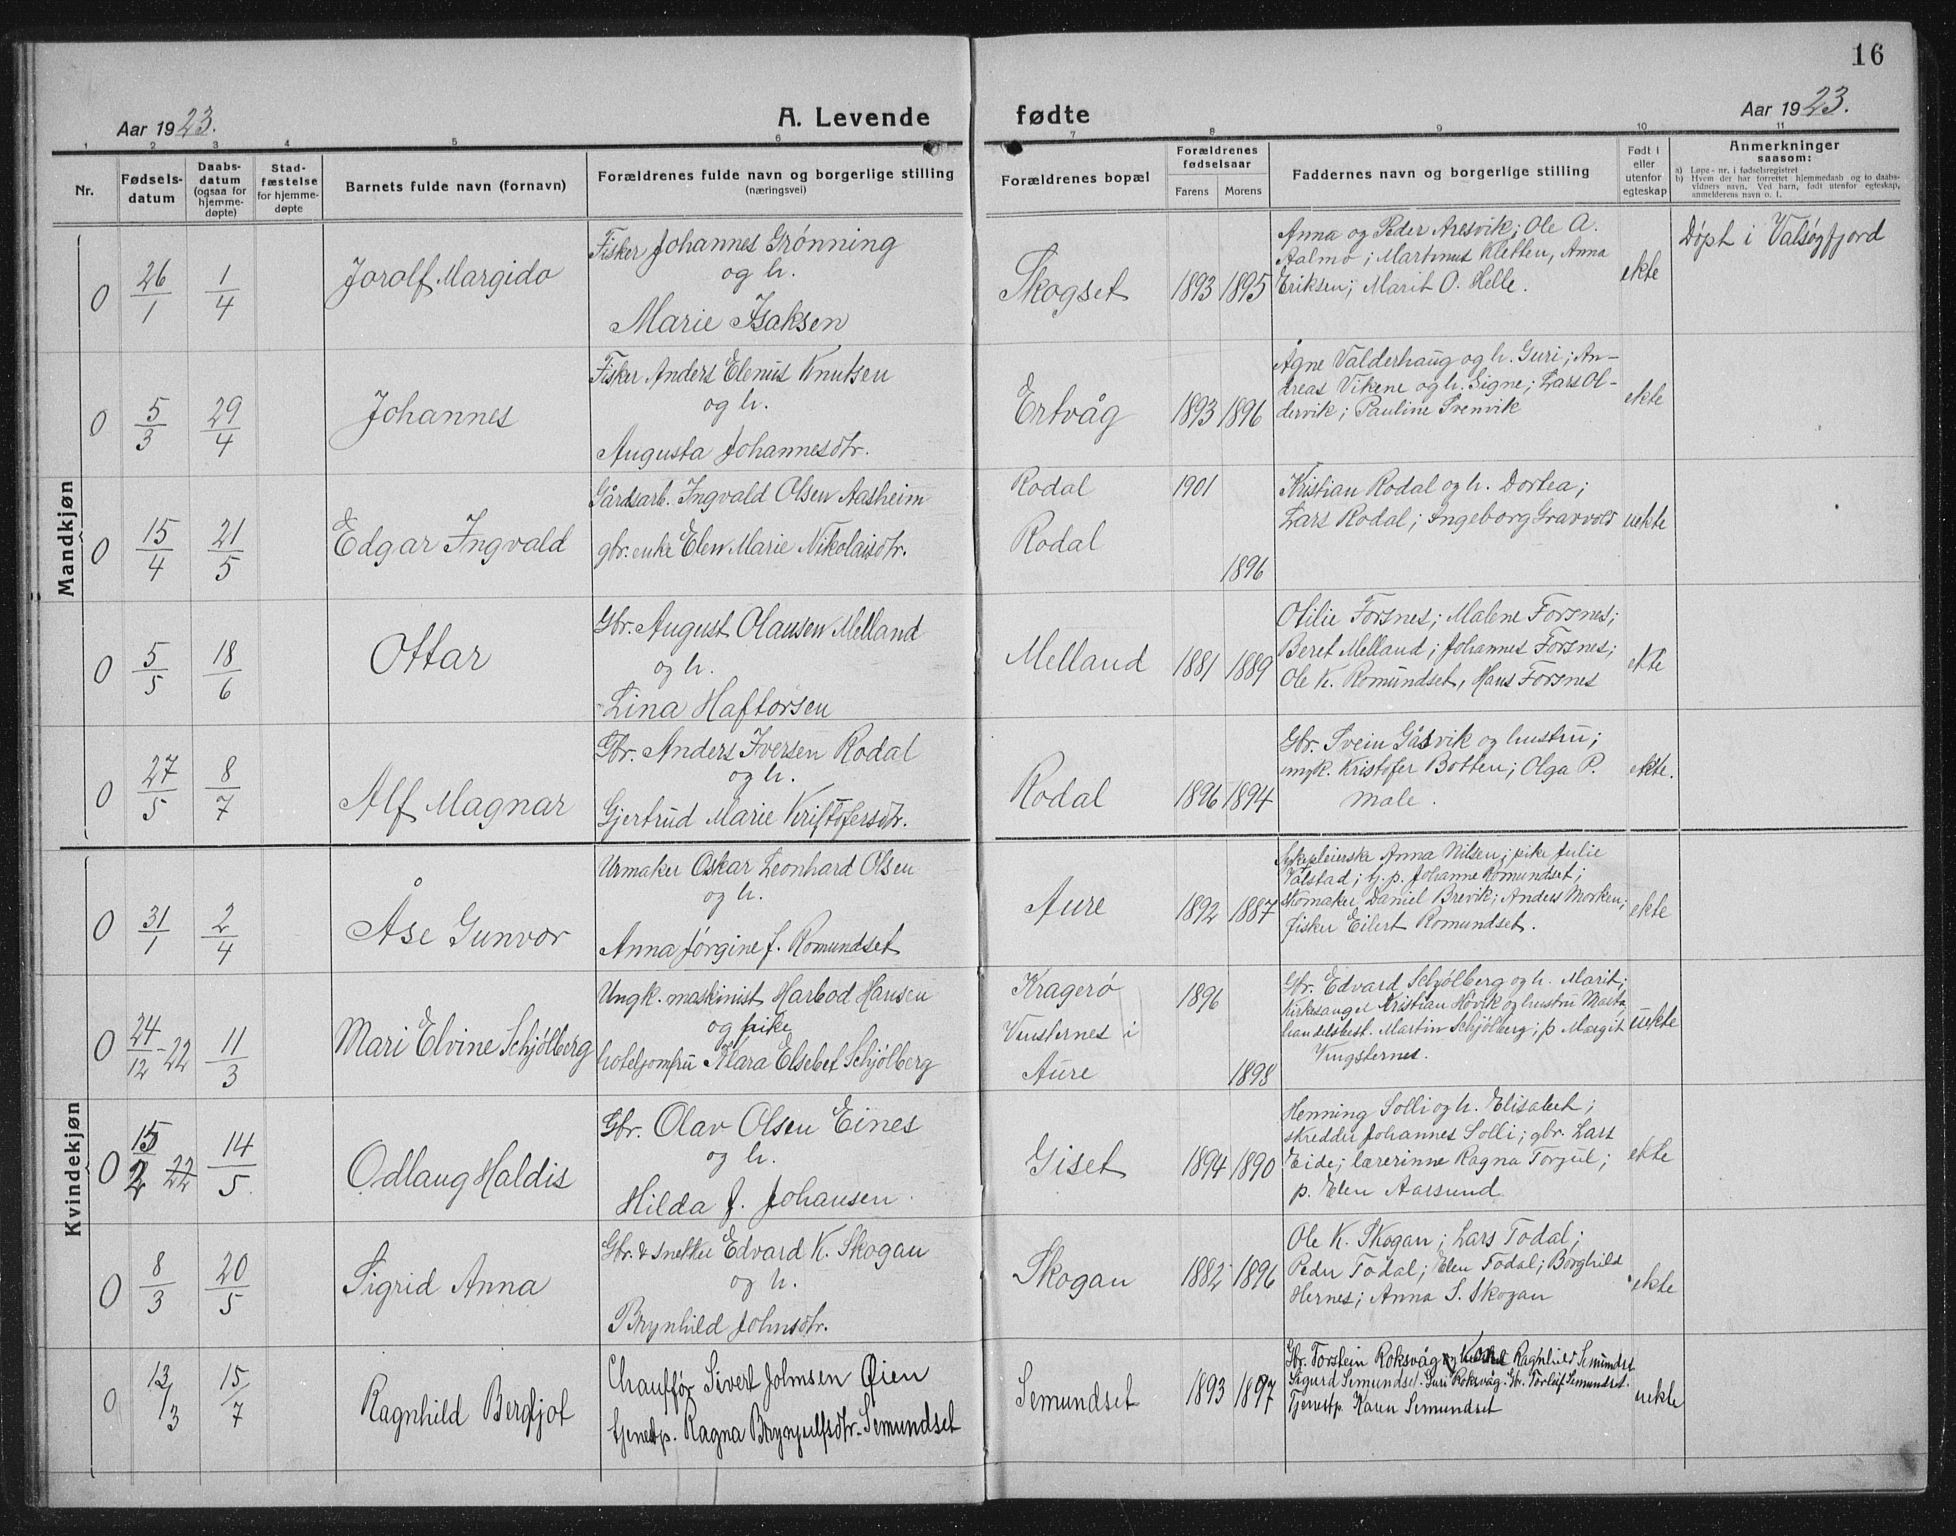 16
Aar 1923.
A. Levende fødte
Aar 1923.
1 2 3 4 5 6 7 8 9 10 11
Nr.
Fødsels-
datum
Daabs-
datum
(ogsaa for
hjemme-
døpte)
Stad-
fæstelse
for hjemme-
døpte
Barnets fulde navn (fornavn)
Forældrenes fulde navn og borgerlige stilling
(næringsvei)
Forældrenes bopæl
Forældrenes
fødselsaar
Farens Morens
Faddernes navn og borgerlige stilling
Født i
eller
utenfor
egteskap
Anmerkninger
saasom:
a) Løpe-nr. i fødselsregistret
b) Hvem der har forrettet hjemmedaab og to daabs-
vidners navn. Ved barn, født utenfor egteskap,
anmelderens navn o. l.
Mandkjøn
0 26/1 1/4
Jorolf Margido
Fisker Johannes Grønning
og h.
Marie Isaksen
Skogset
1893 1895
Anna og Peder Aresvik; Ole A.
Aalmo; Martinus Kletten, Anna
Eriksen; Marit O. Helle.
ekte
Døpt i Valsøyfjord
0 5/3 29/4
Johannes
Fisker Anders Elenius Knutsen
og h.
Augusta Johannesdtr.
Ertvåg
1893 1896
Agne Valderhaug og h. Guri; An-
dreas Vikene og h. Signe; Lars Ol-
dervik; Pauline Svenvik
ekte
0 15/4 21/5
Edgar Ingvald
Gårdsarb. Ingvald Olsen Aasheim
gbr. enke Elen Marie Nikolaisdtr.
Rodal
Rodal
1901
1896
Kristian Rodal og h. Dortea;
Lars Rodal; Ingeborg Gravvold
uekte
0 5/5 18/6
Ottar
Gbr. August Olausen Melland
og h.
Lina Haftorsen
Melland
1881 1889
Otilie Forsnes; Malene Forsnes;
Beret Melland; Johannes Forsnes;
Ole K. Romundset, Hans Forsnes
ekte
0 27/5 8/7
Alf Magnar
Gbr. Anders Iversen Rodal
og h.
Gjertrud Marie Kristofersdtr.
Rodal
1896 1894
Gbr. Svein Gåsvik og hustru;
ungk. Kristofer Botten; Olga P.
Male.
ekte.
Kvindekjøn
0 31/1 2/4
Åse Gunvor
Urmaker Oskar Leonhard Olsen
og h.
Anna Jørgine f. Romundset
Aure
1892 1887
Sykepleierske Anna Nilsen; pike Julie
Valstad; G. p. Johanne Romundset;
Skomaker Daniel Brevik; Anders Morken;
fisker Eilert Romundset.
ekte
0 24/12-22 11/3
Mari Elvine Schjølberg
Ungk. maskinist Harbod Hansen
og pike
hoteljomfru Klara Elsebet Schjølberg
Kragerø
Vinsternes i
Aure
1896
1898
Gbr. Edvard Schjølberg og h. Marit;
Kirkesanger Kristian Høvik og hustru Marta,
handelsbest. Martin Schjølberg; p Margit
Vingsternes.
uekte
0 15/2 22 14/5
Odlaug Haldis
Gbr. Olav Olsen Eines
og h.
Hilda f. Johansen
Giset
1894 1890
Henning Solli og h. Elisabet;
skredder Johannes Solli; gbr. Lars
Eide; lærerinne Ragna Torjul;
p. Elen Aarsund
ekte
0 8/3 20/5
Sigrid Anna
Gbr. & snekker Edvard K. Skogan
og h.
Brynhild Johnsdtr.
Skogan
1882 1896
Ole K. Skogan; Lars Todal;
Peder Todal; Elen Todal; Borghild
Hernes; Anna S. Skogan
ekte
0 13/3 15/7
Ragnhild Bergljot
Chauffør Sivert Johnsen Øien
tjenestp. Ragna Brynjulfsdtr. Semundset
Semundset
1893 1897
Gbr. Torstein Roksvåg og Kone Ragnhild Semundset
Sigurd Semundset. Guri Roksvåg. Gbr. Torleif Semundset.
Tjenestp. Karen Semundset
uekte